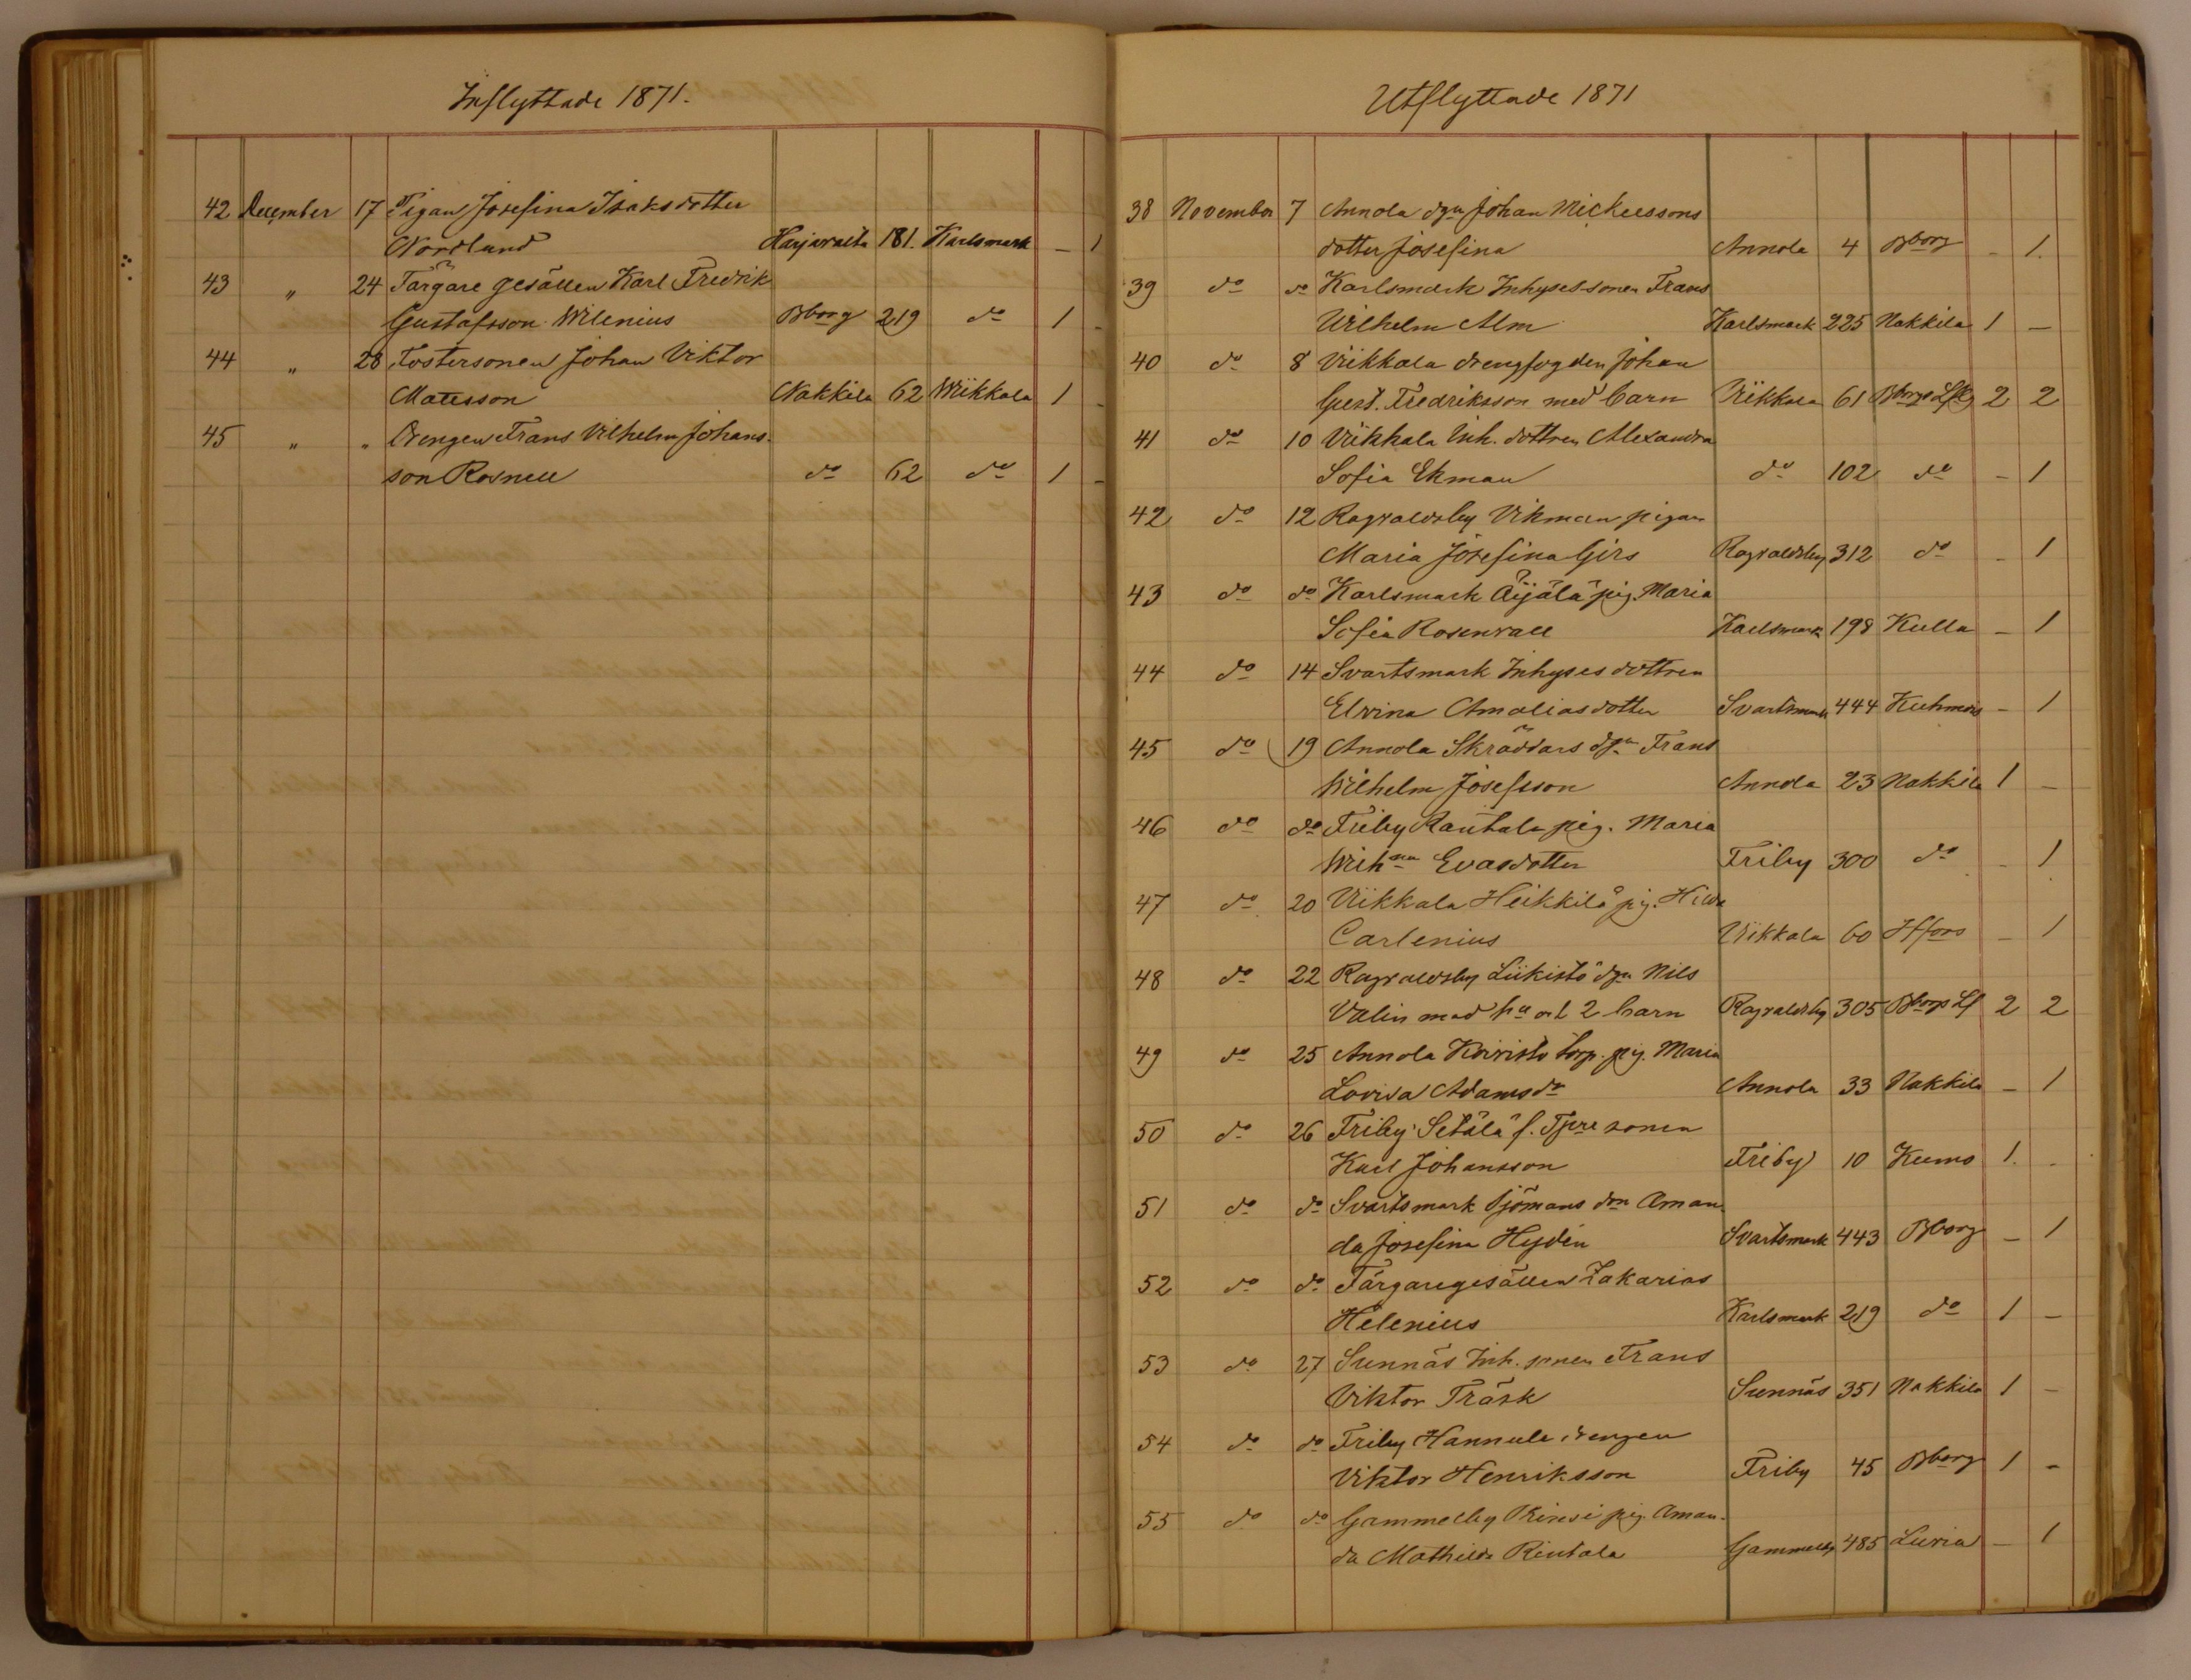 Inflyttade 1871.
42 December 17 Pigan Josefina Isaksdotter
Nordlund Harjavalta 181. Karlsmark – 1
43 " 24 Färgare gesällen Karl Fredrik
Gustafsson Wilenius Bborg 219 do 1 –
44 " 28 Fostersonen Johan Viktor
Matsson Nakkila 62 Wiikkala 1 –
45 " " Drengen Frans Vilhelm Johans-
son Rosnell do 62 do 1 –
Utflyttade 1871
38 November 7 Annola dgn Johan Mickelssons
dotter Josefina Annola 4 Bborg – 1.
39 do do Karlsmark Inhyses-sonen Frans
Wilhelm Alm Karlsmark 225 Nakkila 1 –
40 do 8 Viikkala drengfogden Johan
Gust. Fredriksson med barn Viikkala 61 Bborgs Lfg 2 2
41 do 10 Viikkala Inh. dottren Alexandra
Sofia Ekman do 102 do – 1
42 do 12 Ragvaldsby Vikman pigan
Maria Josefina Girs Ragvaldsby 312 do – 1
43 do do Karlsmark Äijälä pig. Maria
Sofia Rosenvall Karlsmark 198 Kulla – 1
44 do 14 Svartsmark Inhyses dottren
Elvina Amaliasdotter Svartsmark 444 Kuhmois – 1
45 do 19 Annola Skräddars dgn Frans
Wilhelm Josefsson Annola 23 Nakkila 1 –
46 do do Friby Rautala pig. Maria
Wilhna Evasdotter Friby 300 do – 1
47 do 20 Viikkala Heikkilä pig. Hilda
Carlenius Viikkala 60 Hfors – 1
48 do 22 Ragvaldsby Liikisto dgn Nils
Valin med hu och 2 barn Ragvaldsby 305 Bborgs Lf 2 2
49 do 25 Annola Koivisto torp. pig. Maria
Lovisa Adamsdr Annola 33 Nakkila – 1
50 do 26 Friby Setälä f. Tpre sonen
Karl Johansson Friby 10 Kumo 1. –
51 do do Svartsmark Sjömans dtn Aman-
da Josefina Hydén Svartsmark 443 Bborg – 1
52 do do Färgaregesällen Zakarias
Helenius Karlsmark 219 do 1 –
53 do 27 Sunnäs Inh. sonen Frans
Viktor Träsk Sunnäs 351 Nakkila 1 –
54 do do Friby Hannula drengen
Viktor Henriksson Friby 45 Bborg 1 –
55 do do Gammelby Prinsi pig. Aman-
da Mathilda Rintala Gammelby 485 Luvia – 1